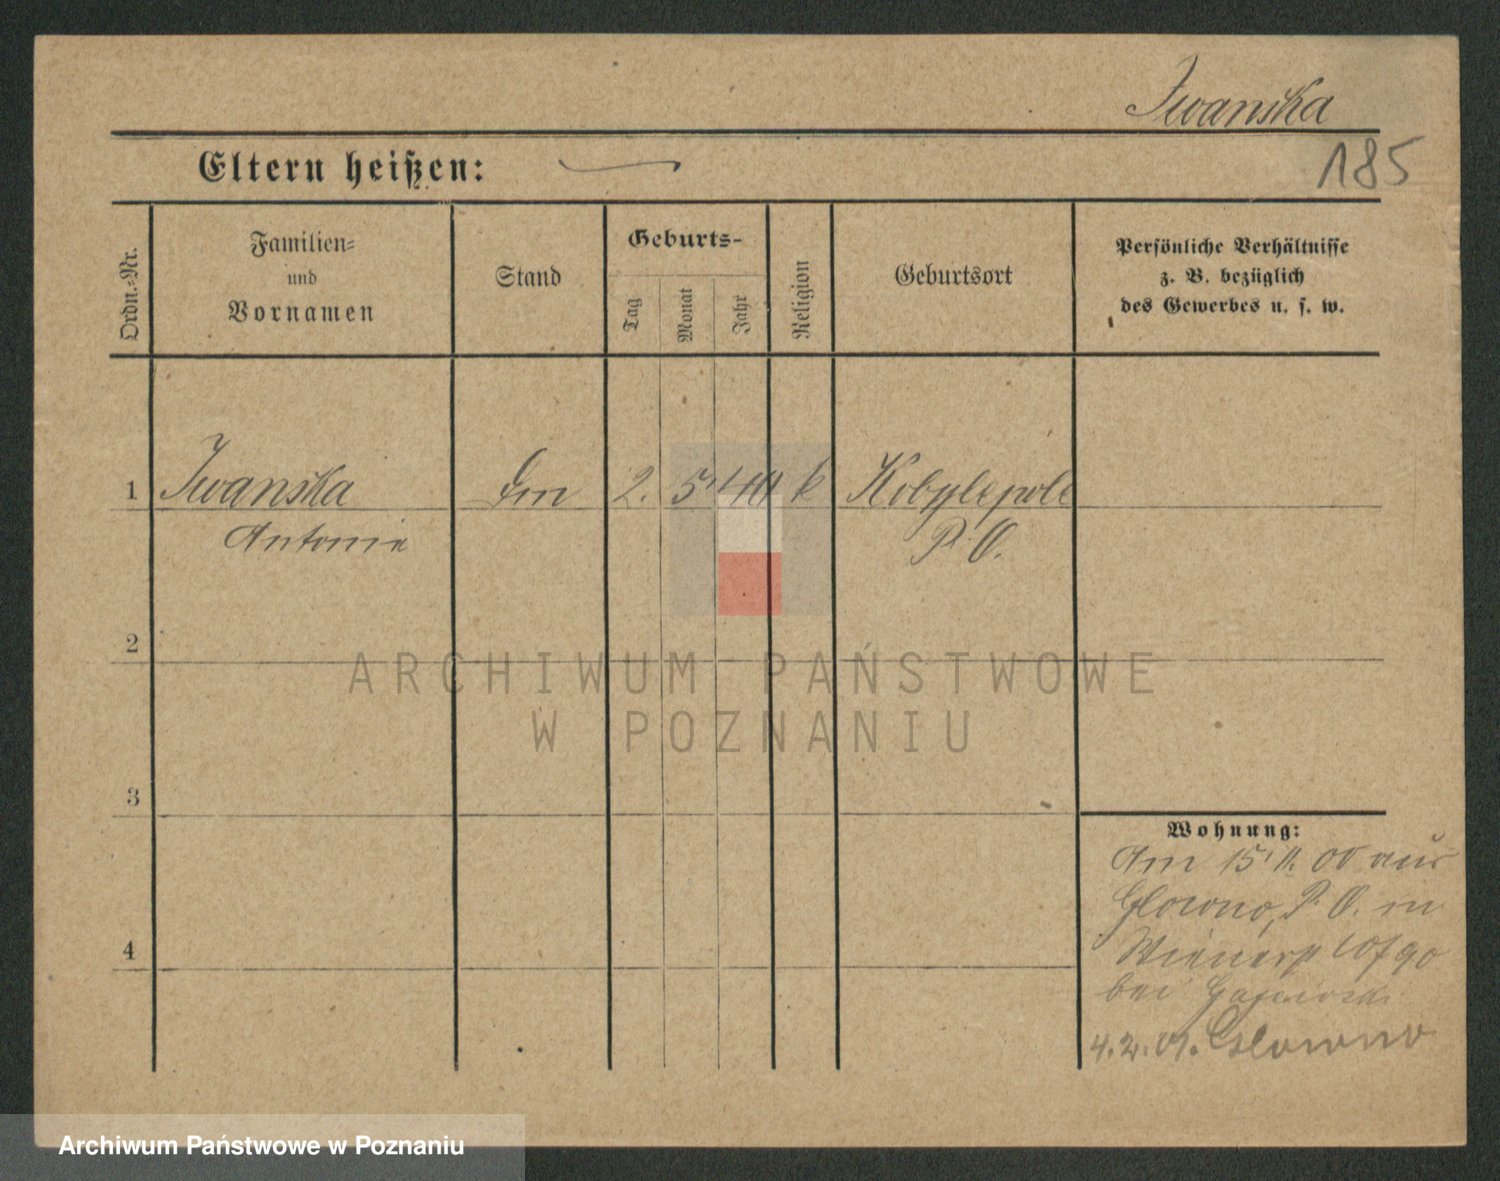 Iwanska
185
Eltern heißen:
Ordn.=Nr.
Familien=
und
Vornamen
Stand
Geburts-
Tag
Monat
Jahr
Religion
Geburtsort
Persönliche Verhältnisse
z. B. bezüglich
des Gewerbes u. s. w.
1 Iwanska 2. 5. k Kobylepole
Antonie P. O.
2
3
4
Wohnung:
Am 15. 11. 00 aus
Glowno, P. O. in
bei
4. 2. 01. Glowno
ARCHIWUM PAŃSTWOWE
W POZNANIU
Archiwum Państwowe w Poznaniu